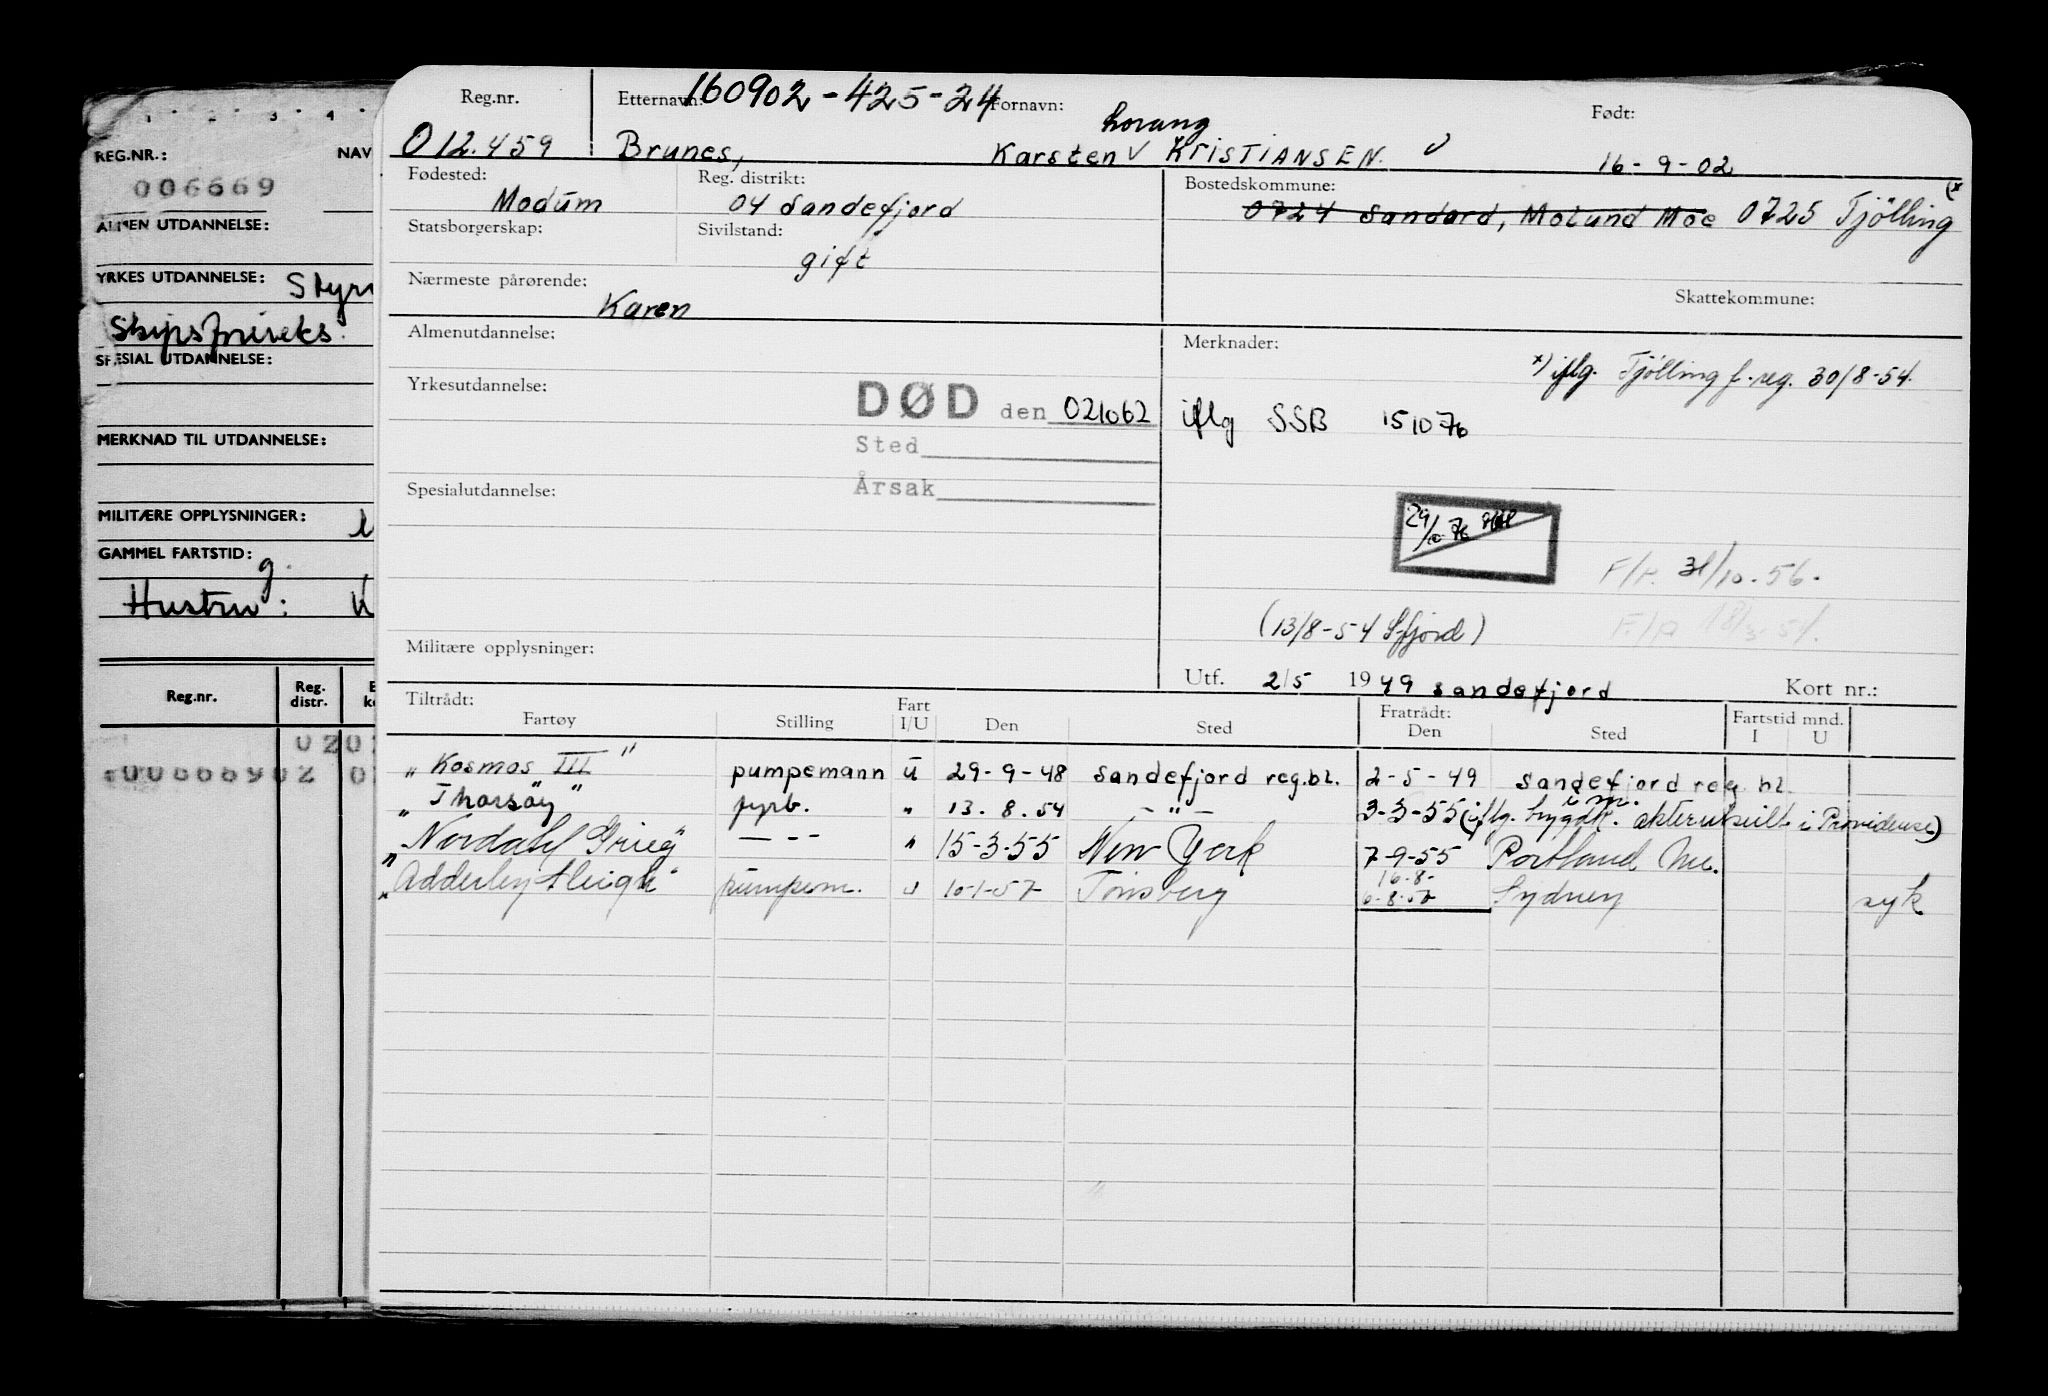 1 2 3 4
REG.NR.: NAV
006669
ALMEN UTDANNELSE:
YRKES UTDANNELSE: Styr
SPESIAL UTDANNELSE:
MERKNAD TIL UTDANNELSE:
MILITÆRE OPPLYSNINGER:
GAMMEL FARTSTID: g.
Hustru: K
Reg.nr. Reg. distr.
Reg.nr. Etternavn: 160902-425-24 Fornavn: Født:
012.459 Brunes, Karsten V KRISTIANSEN. 16-9-02
Fødested: Reg. distrikt: Bostedskommune:
Modum 04 Sandefjord 0724 Sandard, Molund Moe 0725 Tjölling (x
Statsborgerskap: Sivilstand:
gift
Nærmeste pårørende: Skattekommune:
Karen
Almenutdannelse: Merknader:
x) iflg. Tjölling f.reg. 30/8-54.
Yrkesutdannelse:
DØD den 021062 iflg SSB 151076
Sted
Årsak
Spesialutdannelse:
29/10-76
F/P. 31/10-56.
(13/8-54 Sfjord) F/P 18/3-51.
Militære opplysninger:
Utf. 2/5 1949 Sandefjord Kort nr.:
Tiltrådt: Fart Fratrådt: Fartstid mnd.
Fartøy Stilling I/U Den Sted Den Sted I U
"Kosmos III" pumpemann u 29-9-48 Sandefjord reg.bl. 2-5-49 Sandefjord reg. bl.
"Thorsöy" fyrb. " 13.8.54 -"- 3-3-55 (iflg. akterutseilt i Providense)
"Nordahl Grieg" --- " 15-3-55 New York 7-9-55 Portland Me.
16-8-
"Adderley Hleigh" pumpem. u 10-1-57 Tønsberg 6-8-57 Sydney syk